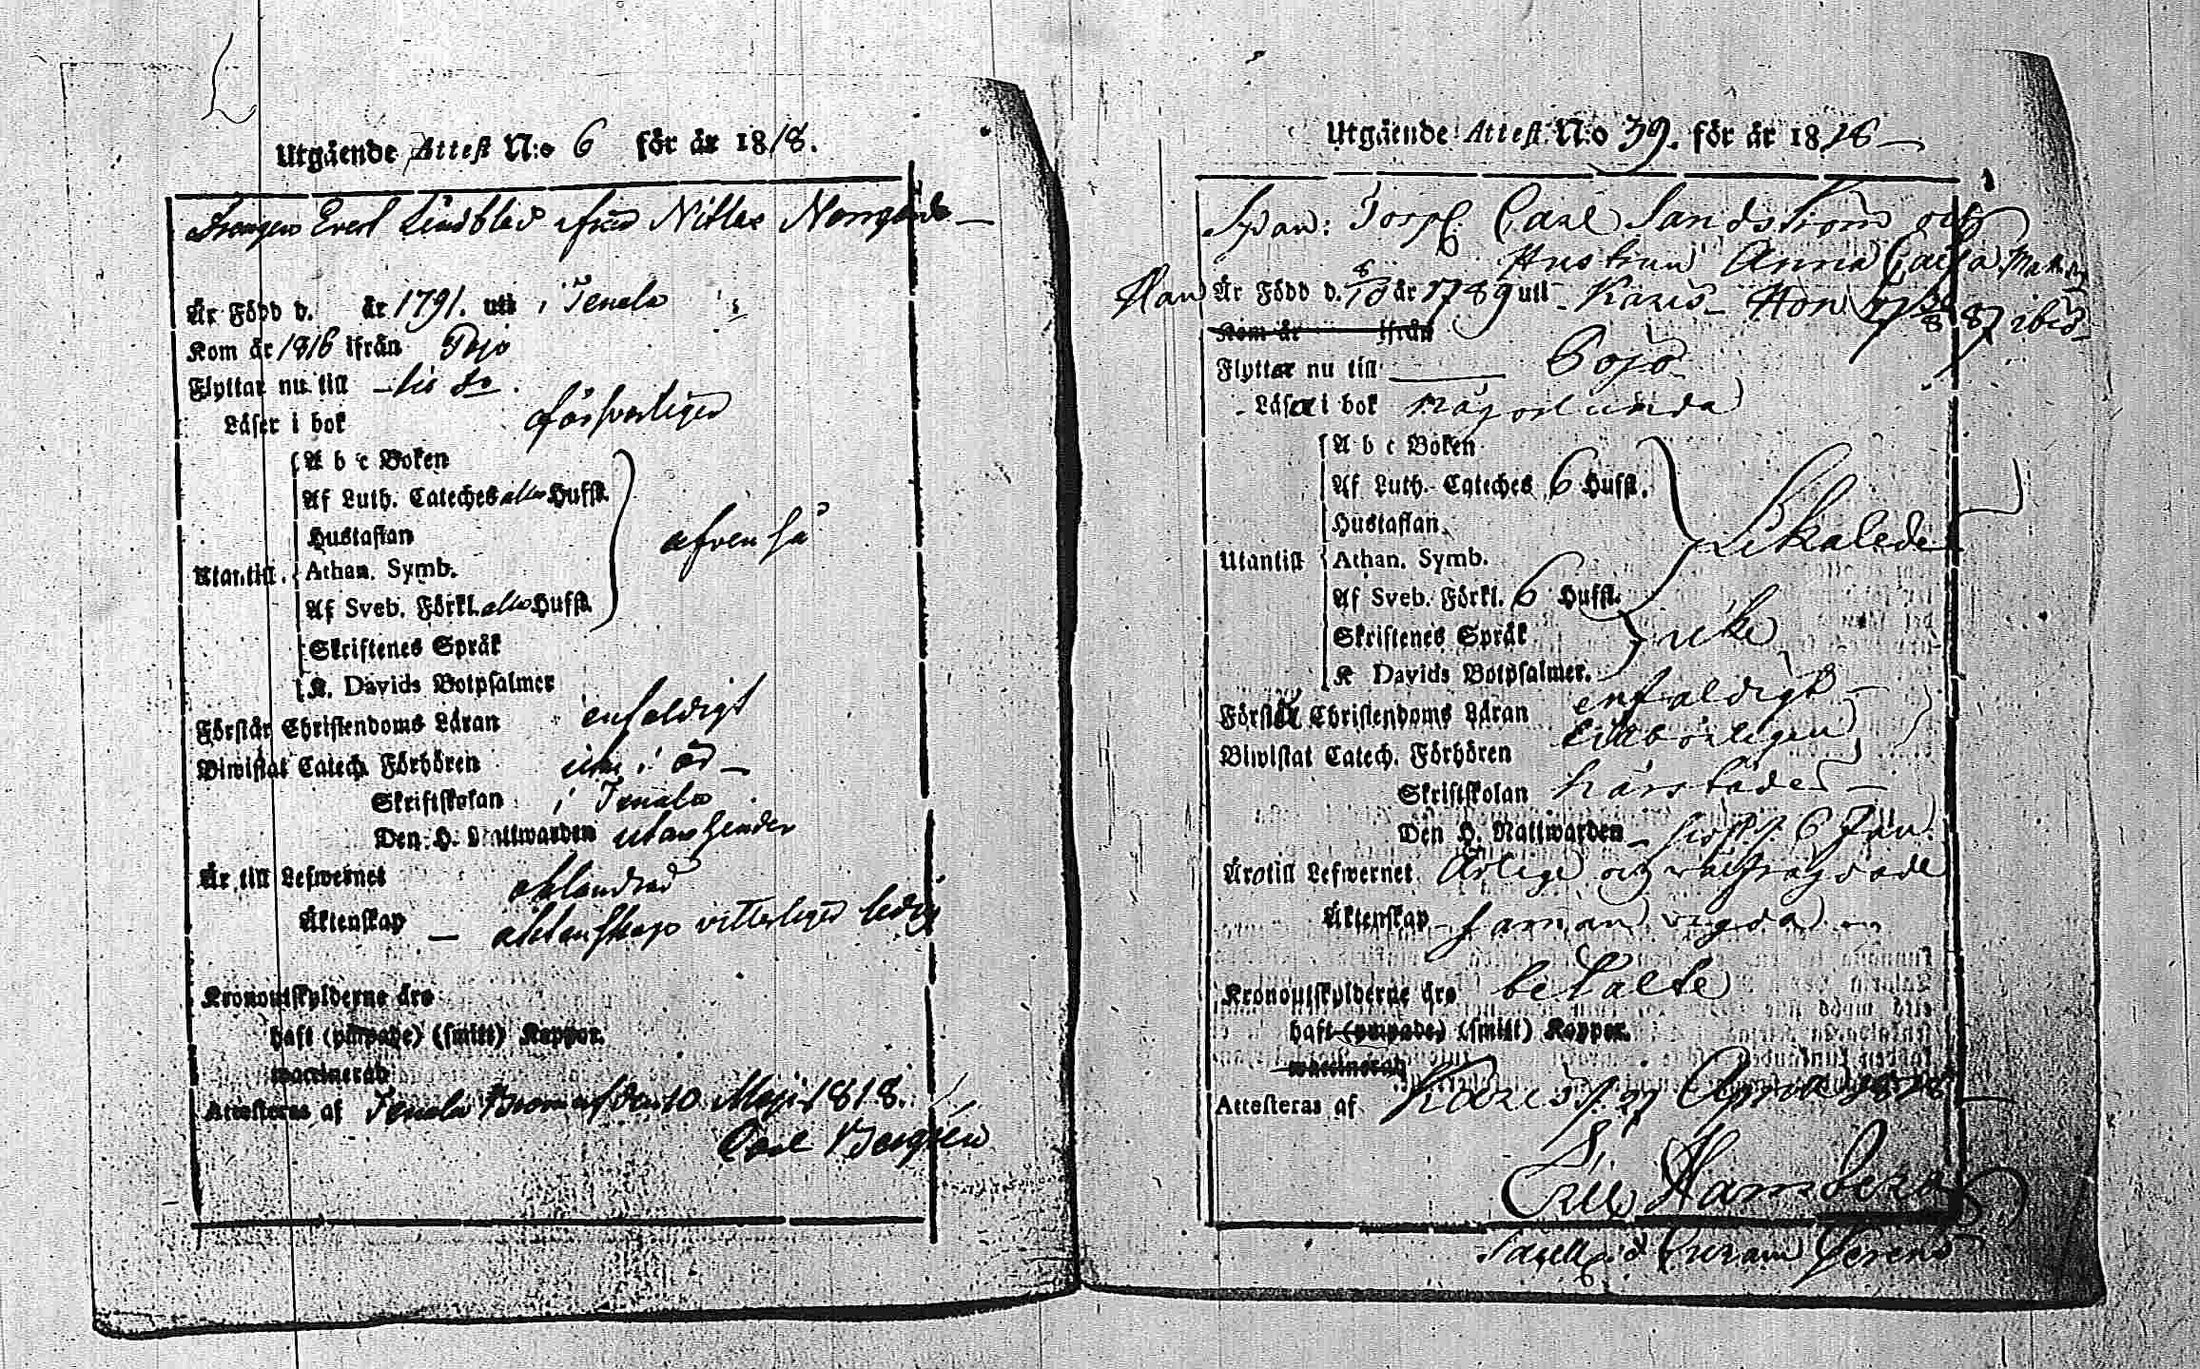 Utgående Attest N:o 6 för år 1818.
Drengen Evert Lindblad ifrån Nitlax Norrgårds
Är Född d. år 1791. uti Tenala
Kom år 1816 ifrån Pojo
Flyttar nu till
Läser i bok försvarligen
A b c Boken
Af Luth. Cateches alla Hufst.
Hustaflan
äfven så
Utantill. Athan. Symb.
Af Sveb. Förkl. alla Hufst.
Skriftenes Språk
K. Davids Botpsalmer
Förstår Christendoms Läran enfaldigt
Biwistat Catech. Förhören
Skriftskolan i Tenala
Den H. Nattwarden utan hinder
Är till Lefwernet
Äktenskap – äktenskap vitterligen ledig
Kronoutskylderne äro
haft (ympade) (smitt) Koppor.
waccinerad
Attesteras af Tenala Bromarf den 10 Maji 1818.
Carl
Utgående Attest N:o 39. för år 1818
Torp. Carl Sandström och
Hustrun Anna Caisa
Han Är Född d. 8/10 år 1789 uti Karis Hon
Kom år ifrån
Flyttar nu till Pojo
Läsa i bok någorlunda
A b c Boken
Af Luth. Cateches 6 Hufst.
Hustaflan
Likaledes
Utantill Athan. Symb.
Af Sveb. Förkl. 6 Hufst.
Skriftenes Språk icke
K Davids Botpsalmer.
Förstå Christendoms Läran enfaldigt
Biwistat Catech. Förhören
Skriftskolan härstädes
Den H. Nattwarden sist d. 6 Jan.
Äro till Lefwernet Ärlige och välfrägdade
Äktenskap samman vigda
Kronoutskylderne äro betalte
haft (ympade) (smitt) Koppor.
waccinerad
Attesteras af Karis d. 27 April 1818